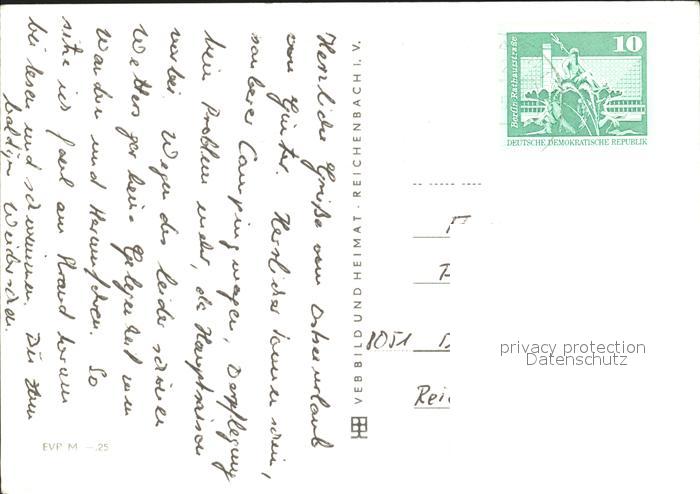 Herzliche Grüße vom Ostseeurlaub
von Günter. Herrliches Sonnenschein,
saubere Campingwagen, Verpflegung
kein Problem mehr, da Hauptsaison
vorbei. Wegen des leider schönen
Wetters gar keine Gelegenheit zum
Wandern und Herumfahren. So
sitze ich faul am Strand herum
bei lesen und schwimmen. Bis zum
baldigen Wiedersehen.
VEB BILD UND HEIMAT · REICHENBACH I. V.
EVP M —.25
Berlin: Rathausstraße
10
DEUTSCHE DEMOKRATISCHE REPUBLIK
8051
Rei
privacy protection
Datenschutz